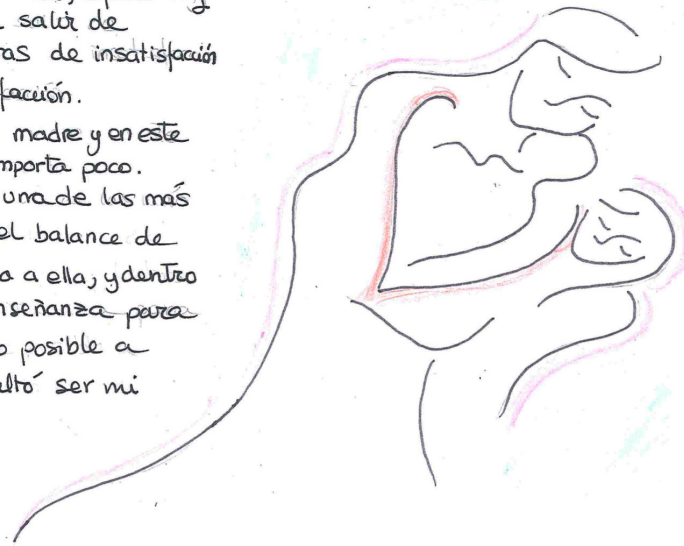 salir de
as de insatisfacción
facción.
madre y en este
mporta poco.
una de las más
el balance de
a a ella, y dentro
nseñanza para
o posible a
ltó ser mi